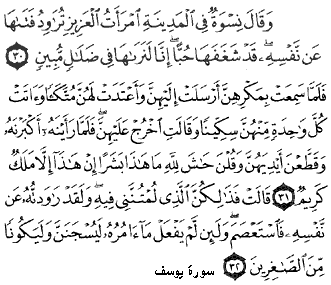 وَقَالَ نِسْوَةٌ فِى ٱلْمَدِينَةِ ٱمْرَأَتُ ٱلْعَزِيزِ تُرَٰوِدُ فَتَىٰهَا
عَن نَّفْسِهِۦ قَدْ شَغَفَهَا حُبًّا إِنَّا لَنَرَىٰهَا فِى ضَلَٰلٍ مُّبِينٍ ٣٠
فَلَمَّا سَمِعَتْ بِمَكْرِهِنَّ أَرْسَلَتْ إِلَيْهِنَّ وَأَعْتَدَتْ لَهُنَّ مُتَّكَـًٔا وَءَاتَتْ
كُلَّ وَٰحِدَةٍ مِّنْهُنَّ سِكِّينًا وَقَالَتِ ٱخْرُجْ عَلَيْهِنَّ فَلَمَّا رَأَيْنَهُۥٓ أَكْبَرْنَهُۥ
وَقَطَّعْنَ أَيْدِيَهُنَّ وَقُلْنَ حَٰشَ لِلَّهِ مَا هَٰذَا بَشَرًا إِنْ هَٰذَآ إِلَّا مَلَكٌ
كَرِيمٌ ٣١ قَالَتْ فَذَٰلِكُنَّ ٱلَّذِى لُمْتُنَّنِى فِيهِ وَلَقَدْ رَٰوَدتُّهُۥ عَن
نَّفْسِهِۦ فَٱسْتَعْصَمَ وَلَئِن لَّمْ يَفْعَلْ مَآ ءَامُرُهُۥ لَيُسْجَنَنَّ وَلَيَكُونًا
مِّنَ ٱلصَّٰغِرِينَ ٣٢
سورة يوسف